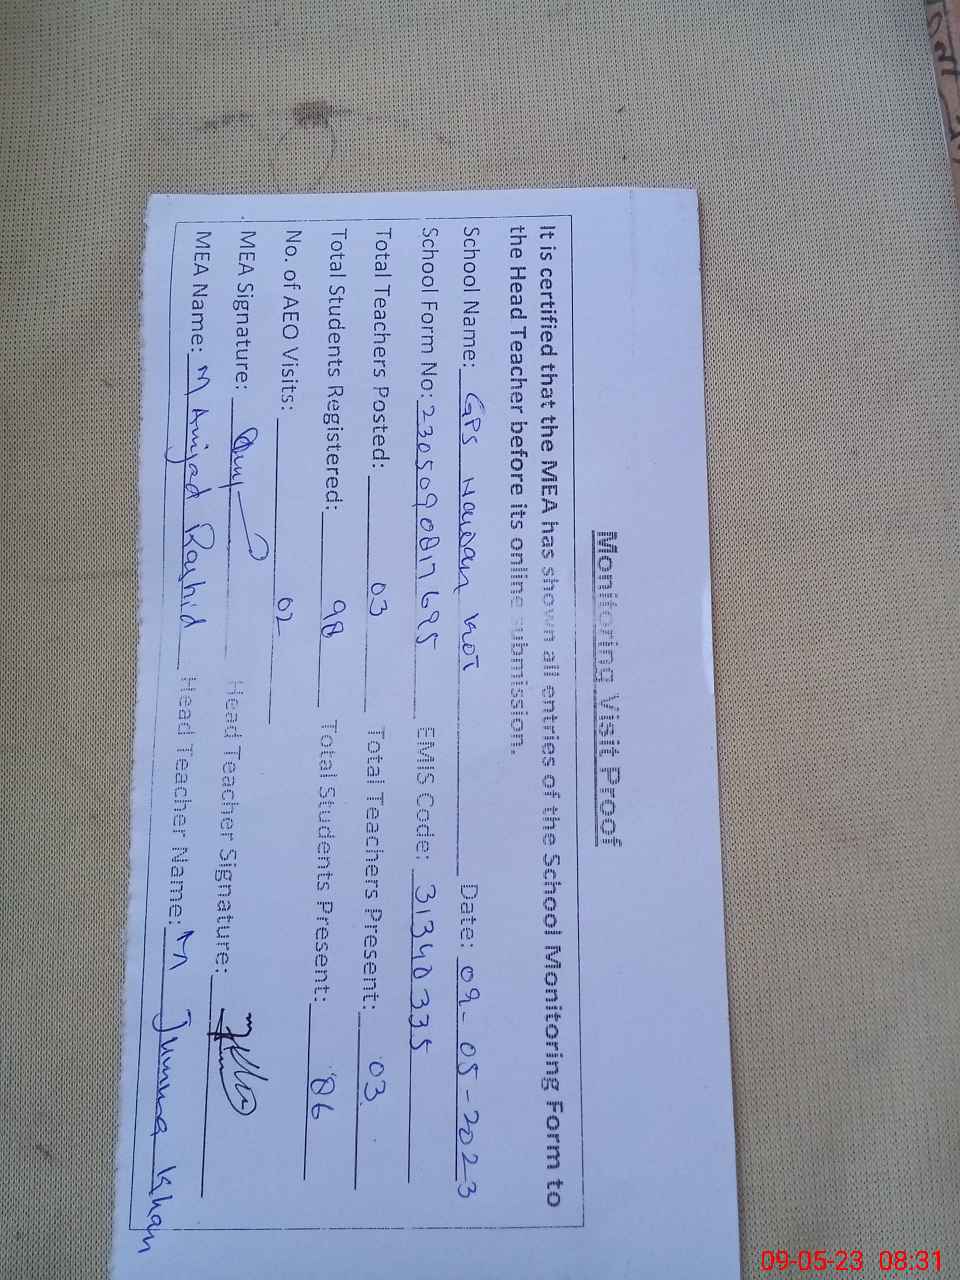 Monitoring Visit Proof
It is certified that the MEA has shown all entries of the School Monitoring Form to
the Head Teacher before its online submission.
School Name: GPS Nawan Kot Date: 09-05-2023
School Form No: 230509081769 5 EMIS Code: 31340335
Total Teachers Posted: 03 Total Teachers Present: 03
Total Students Registered: 98 Total Students Present: 86
No. of AEO Visits: 02
MEA Signature: Head Teacher Signature:
MEA Name: M Amjad Rashid Head Teacher Name: M Jumma Khan
09-05-23 08:31